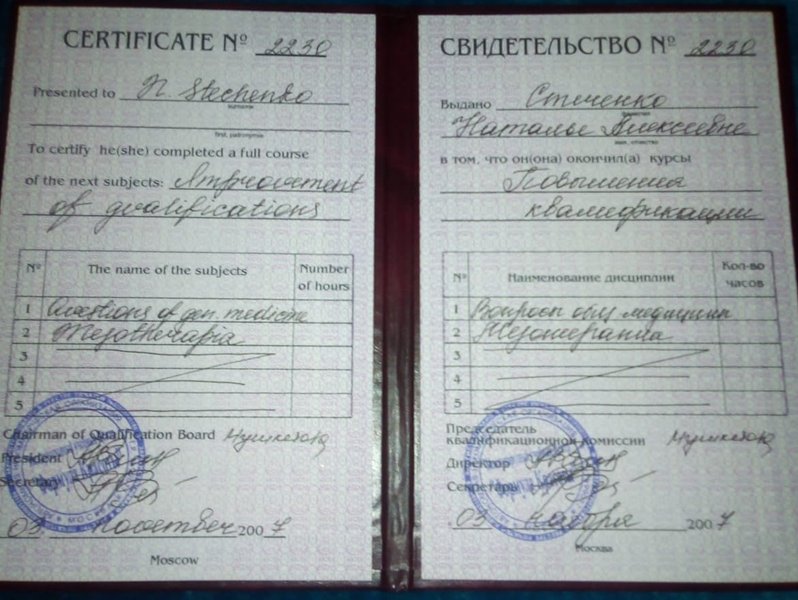 CERTIFICATE Nº 2230
Presented to N. Stechenko
surname
first, patronymic
To certify he(she) completed a full course
of the next subjects: Improvement
of qvalifications
Nº The name of the subjects Number of hours
1 Qvestions of gen. medicine
2 Mezotherapia
3
4
5
Chairman of Qualification Board
President
Secretary
03 november 2007
Moscow
СВИДЕТЕЛЬСТВО Nº 2230
Выдано Стеченко
Наталье Алексеевне
имя, отчество
в том, что он(она) окончил(а) курсы
Повышения
квалификации
Nº Наименование дисциплин Кол-во часов
1 Вопросы общ. медицины
2 Мезотерапия
3
4
5
Председатель
квалификационной комиссии
Директор
Секретарь
03 ноября 2007
Москва